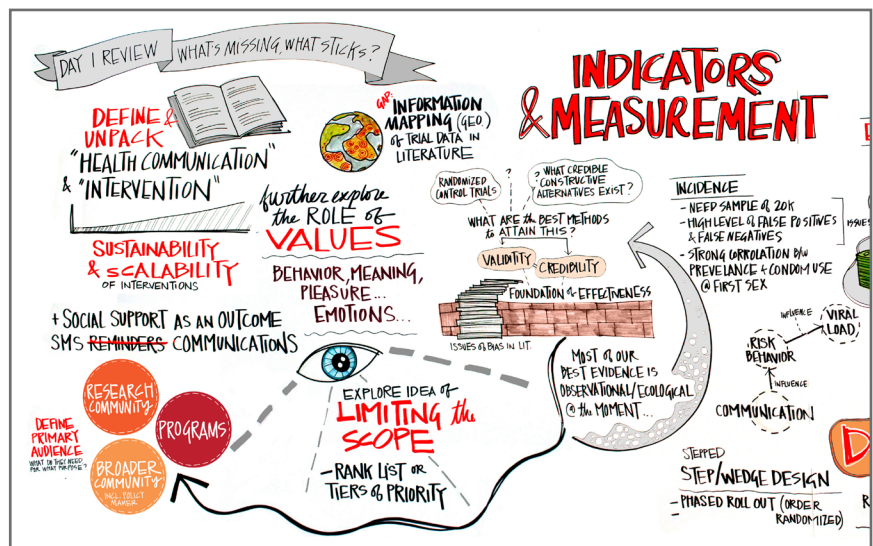 DAY 1 REVIEW
WHAT'S MISSING, WHAT STICKS?
DEFINE &
UNPACK
"HEALTH COMMUNICATION"
& "INTERVENTION"
SUSTAINABILITY
& SCALABILITY
OF INTERVENTIONS
+ SOCIAL SUPPORT AS AN OUTCOME
SMS REMINDERS COMMUNICATIONS
DEFINE
PRIMARY
AUDIENCE
WHAT DO THEY NEED
FOR WHAT PURPOSE?
RESEARCH
COMMUNITY
PROGRAMS
BROADER
COMMUNITY
INCL. POLICY
MAKER
GAP:
INFORMATION
MAPPING (GEO.)
OF TRIAL DATA IN
LITERATURE
further explore
the ROLE of
VALUES
BEHAVIOR, MEANING,
PLEASURE...
EMOTIONS...
EXPLORE IDEA of
LIMITING the
SCOPE
- RANK LIST OR
TIERS of PRIORITY
INDICATORS
& MEASUREMENT
RANDOMIZED
CONTROL TRIALS
?
? WHAT CREDIBLE
CONSTRUCTIVE
ALTERNATIVES EXIST?
WHAT ARE the BEST METHODS
to ATTAIN THIS?
VALIDITY
CREDIBILITY
FOUNDATION of EFFECTIVENESS
ISSUES of BIAS IN LIT.
MOST of OUR
BEST EVIDENCE IS
OBSERVATIONAL/ECOLOGICAL
@ the MOMENT...
INCIDENCE
- NEED SAMPLE of 20K
- HIGH LEVEL of FALSE POSITIVES
& FALSE NEGATIVES
- STRONG CORROLATION b/w
PREVELANCE + CONDOM USE
@ FIRST SEX
ISSUES
VIRAL
LOAD
INFLUENCE
RISK
BEHAVIOR
INFLUENCE
COMMUNICATION
STEPPED
STEP/WEDGE DESIGN
- PHASED ROLL OUT (ORDER
RANDOMIZED)
-
D
R